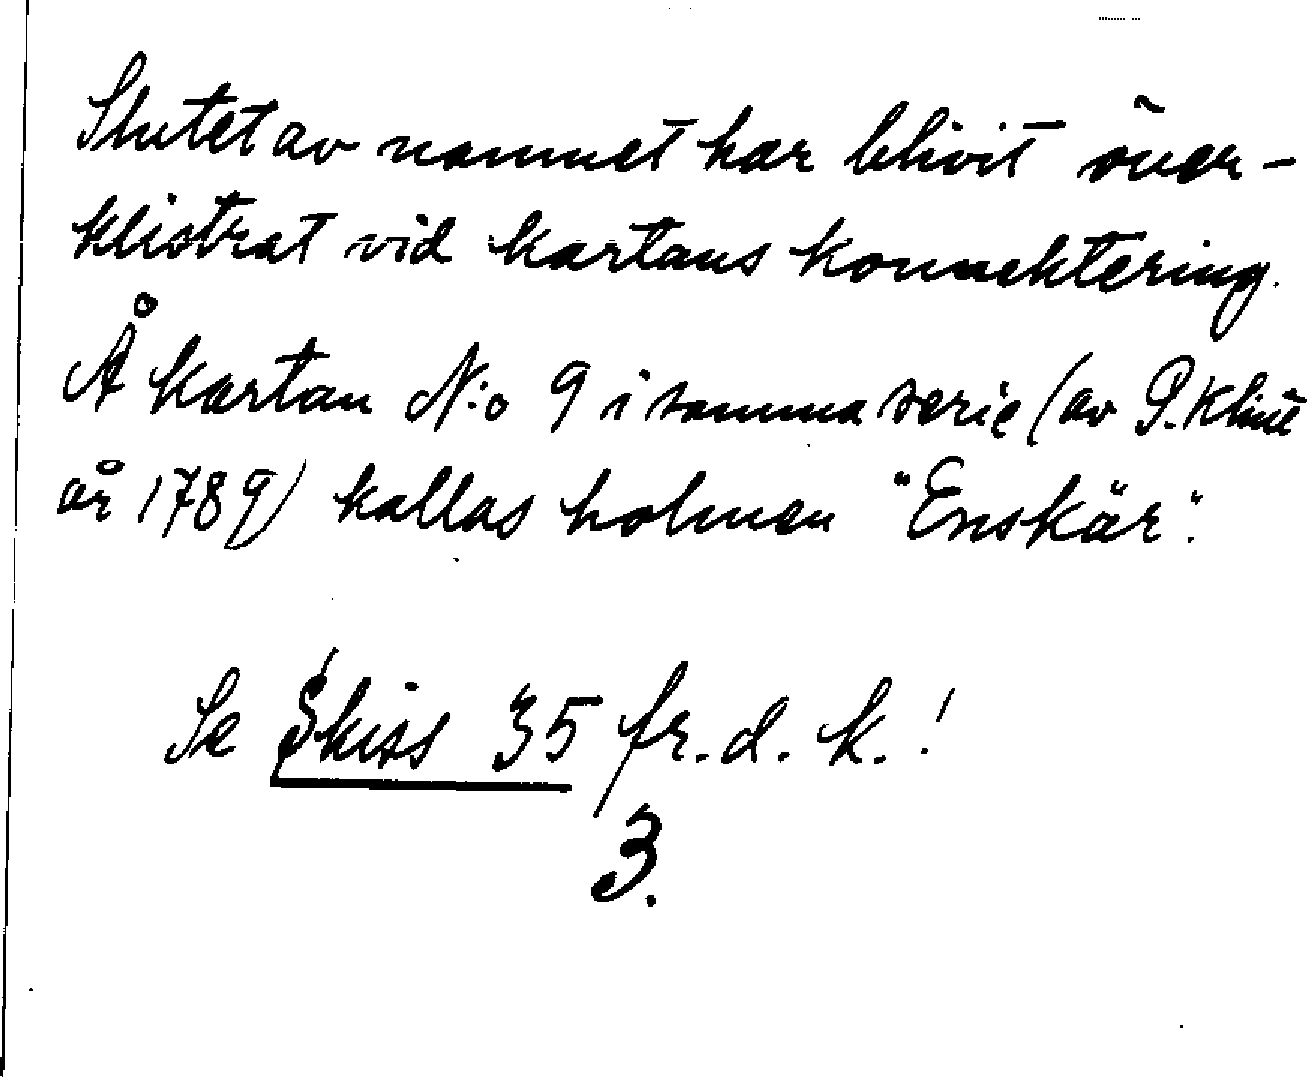 Slutet av namnet har blivit över-
klistrat vid kartans konnektering.
Å kartan N:o 9 i samma serie (av P. Klint
år 1789) kallas holmen "Enskär".
Se Skiss 35 fr. d. k.!
3.